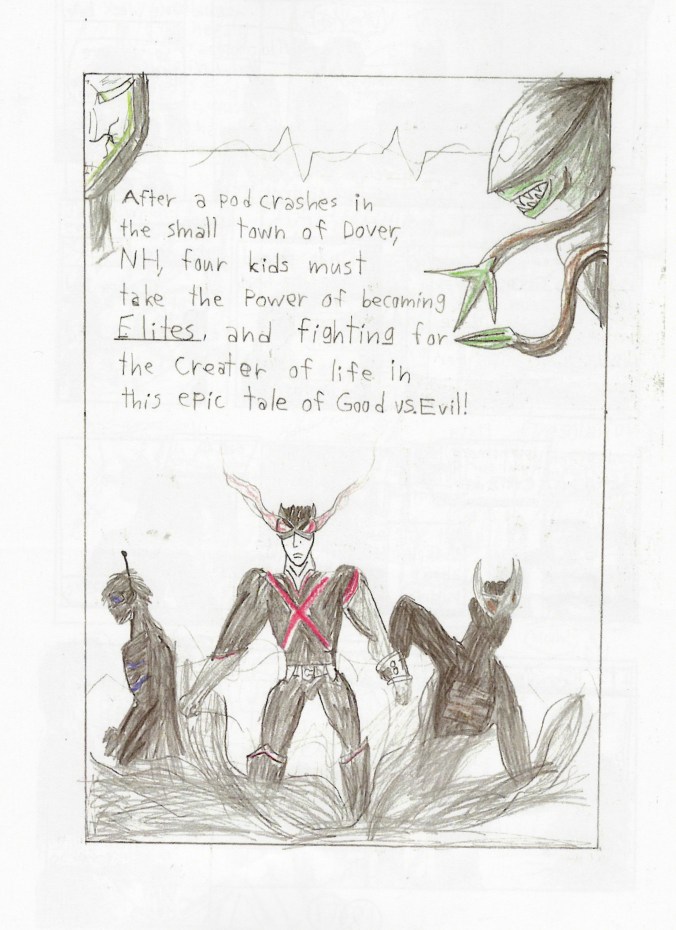 After a pod crashes in
the small town of Dover,
NH, four kids must
take the Power of becoming
Elites, and fighting for
the Creater of life in
this epic tale of Good vs. Evil!